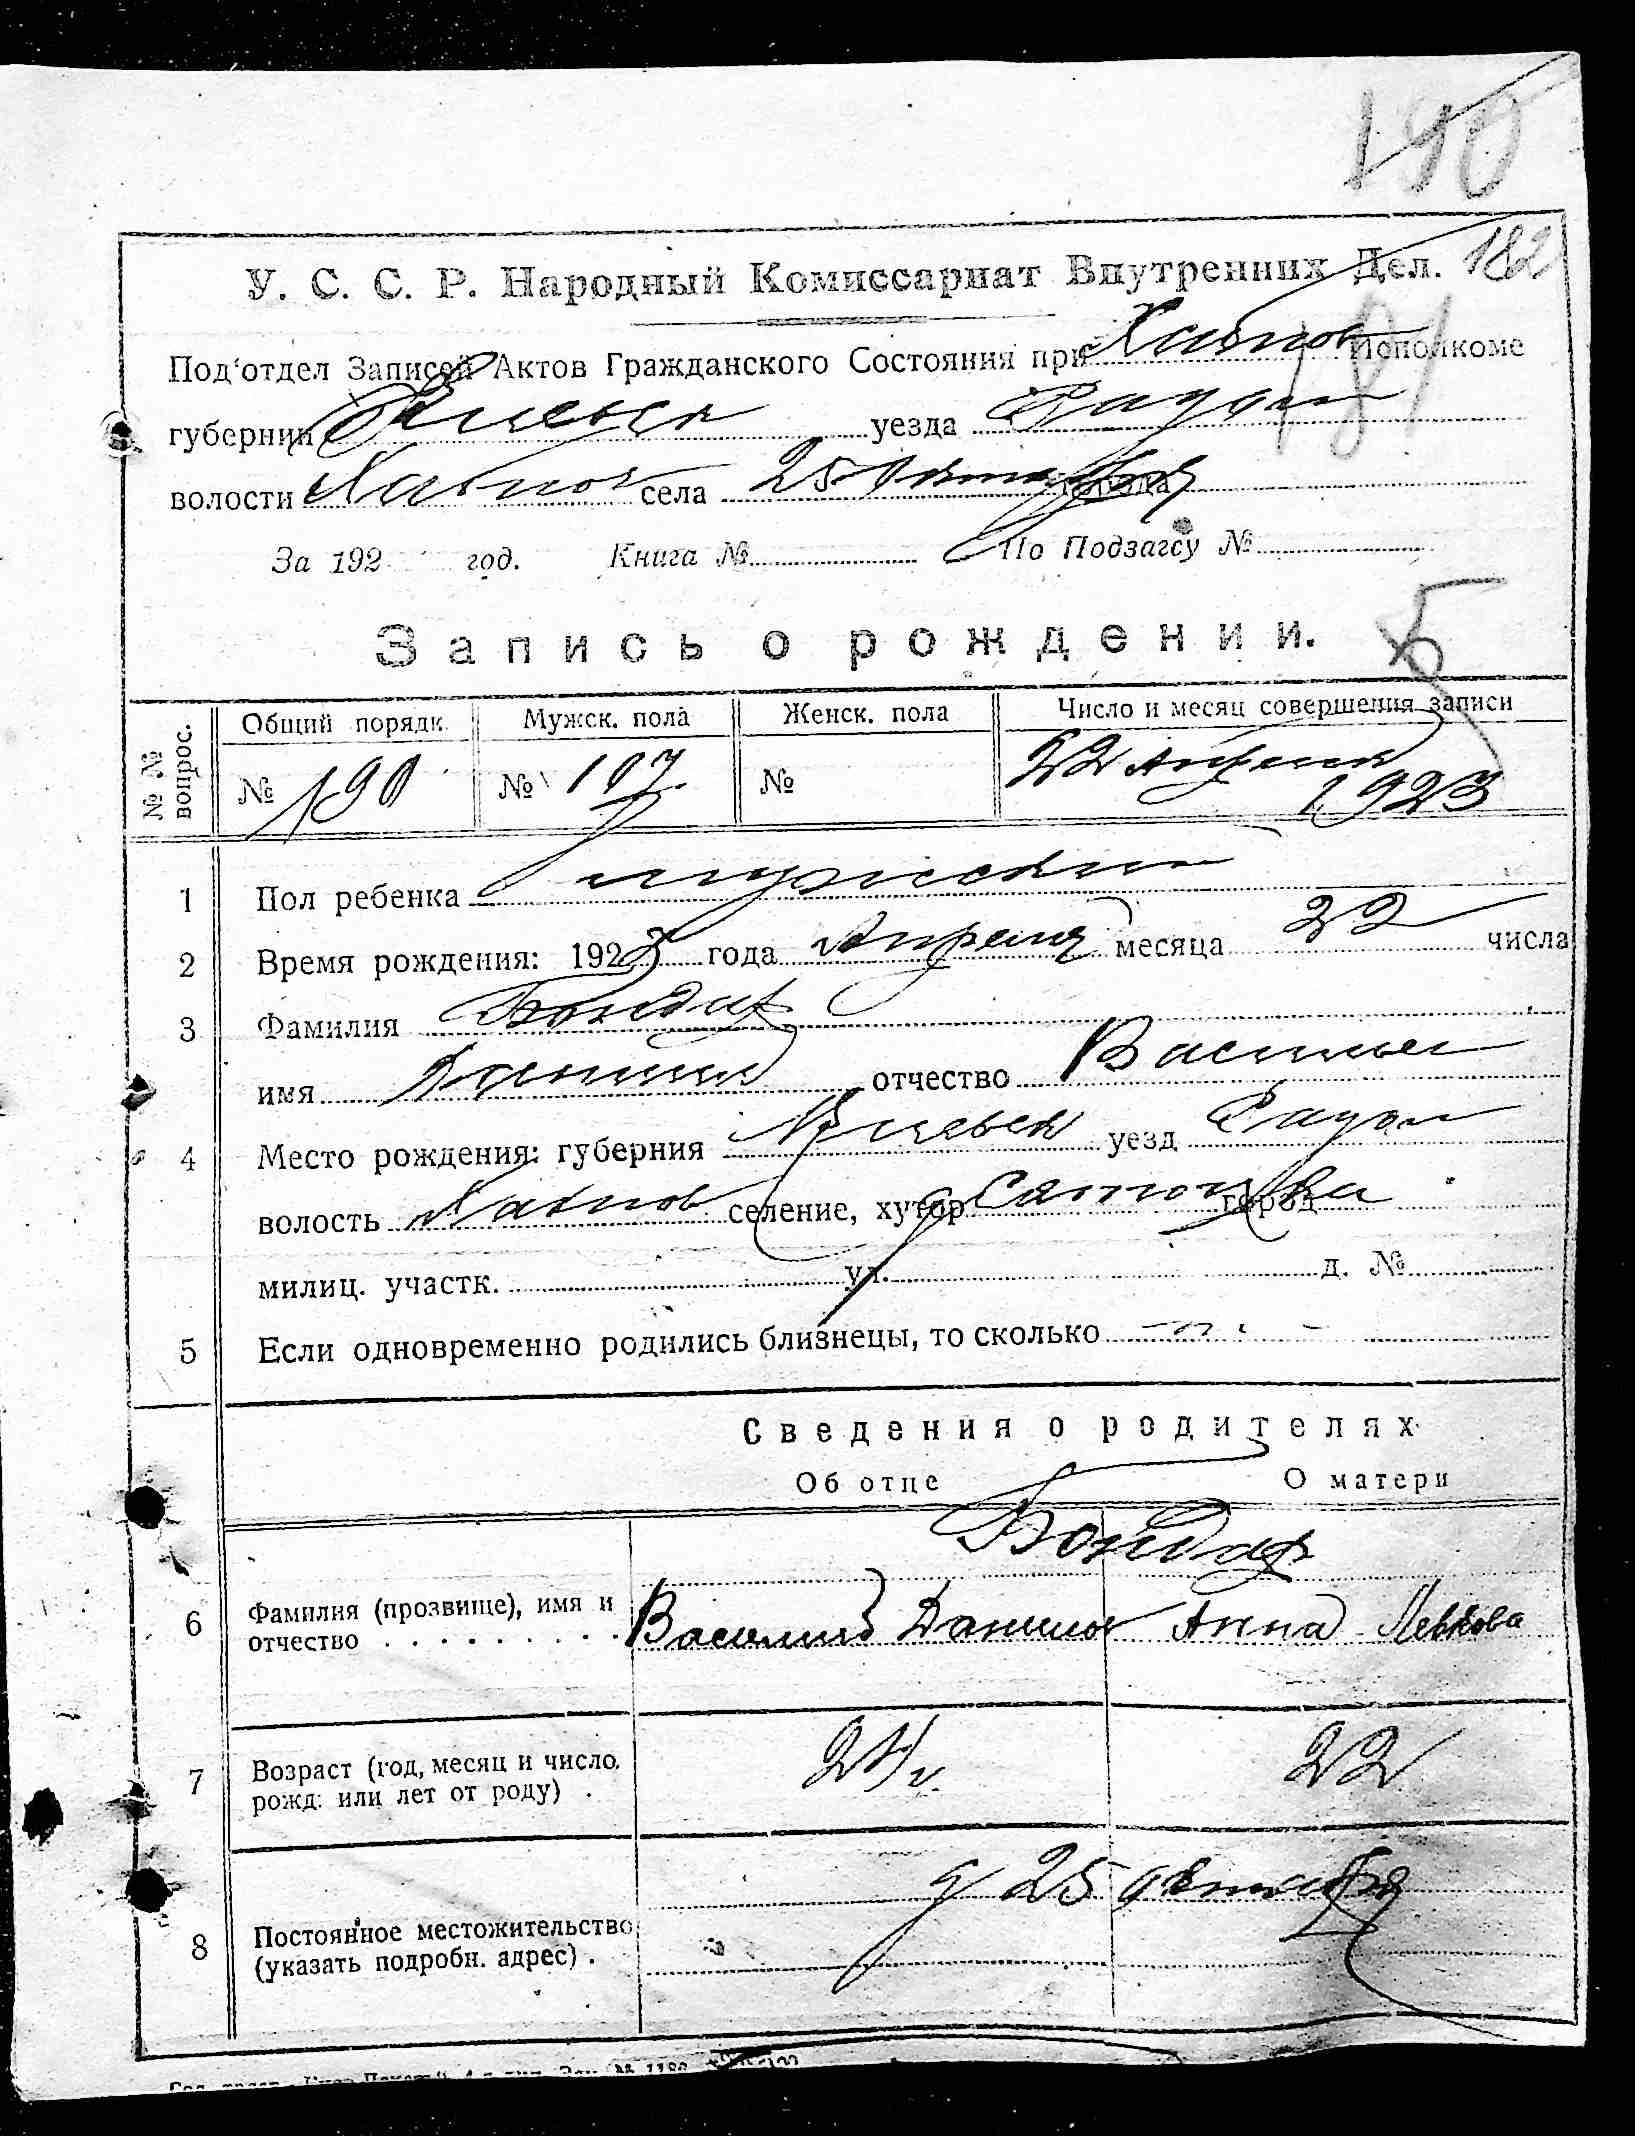 190
У. С. С. Р. Народный Комиссариат Внутренних Дел. 182
181
Под'отдел Записей Актов Гражданского Состояния при Хабнов Исполкоме
губернии Киевск уезда Радом
волости Хабнов села 25 Октября города
За 192 год. Книга № По Подзагсу №
5
Запись о рождении.
№ № вопрос. Общий порядк. Мужск. пола Женск. пола Число и месяц совершения записи
№ 190 № 107 № 22 Апреля
1923
1 Пол ребенка мужской
2 Время рождения: 1923 года Апреля месяца 22 числа
3 Фамилия Бондар
имя Даниил отчество Васильев
4 Место рождения: губерния Киевск уезд Радом
волость Хабнов селение, хутор город
милиц. участк. ул. д. №
5 Если одновременно родились близнецы, то сколько
Сведения о родителях
Об отце О матери
Бондар
6 Фамилия (прозвище), имя и
отчество Василий Данилов Анна Левкова
7 Возраст (год, месяц и число,
рожд. или лет от роду) 24 г. 22
д 25 октября
8 Постоянное местожительство
(указать подробн. адрес)